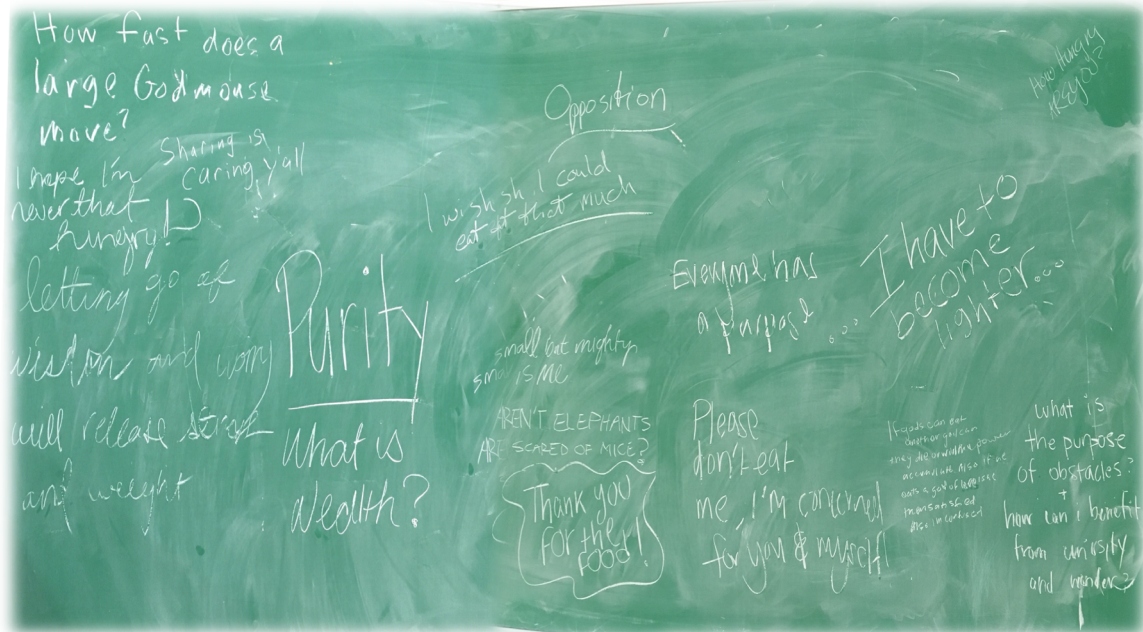 How fast does a
large Godmouse
move?
Sharing is
caring, y'all
I hope I'm
never that
hungry!
letting go of
wisdom and
will release stress
and weight
Purity
What is
Wealth?
Opposition
I wish I could
eat that much
small but mighty
small is me
AREN'T ELEPHANTS
ARE SCARED OF MICE?
Thank you
for the
food!
Everyone has
a purpose
...
I have to
become
lighter...
How Hungry
are you?
Please
don't eat
me, I'm concerned
for you & myself!
If gods can eat
another god can
they die or will the power
accumulate Also if he
eats a god of
Also
what is
the purpose
of obstacles?
+
how can i benefit
from
and wonder?